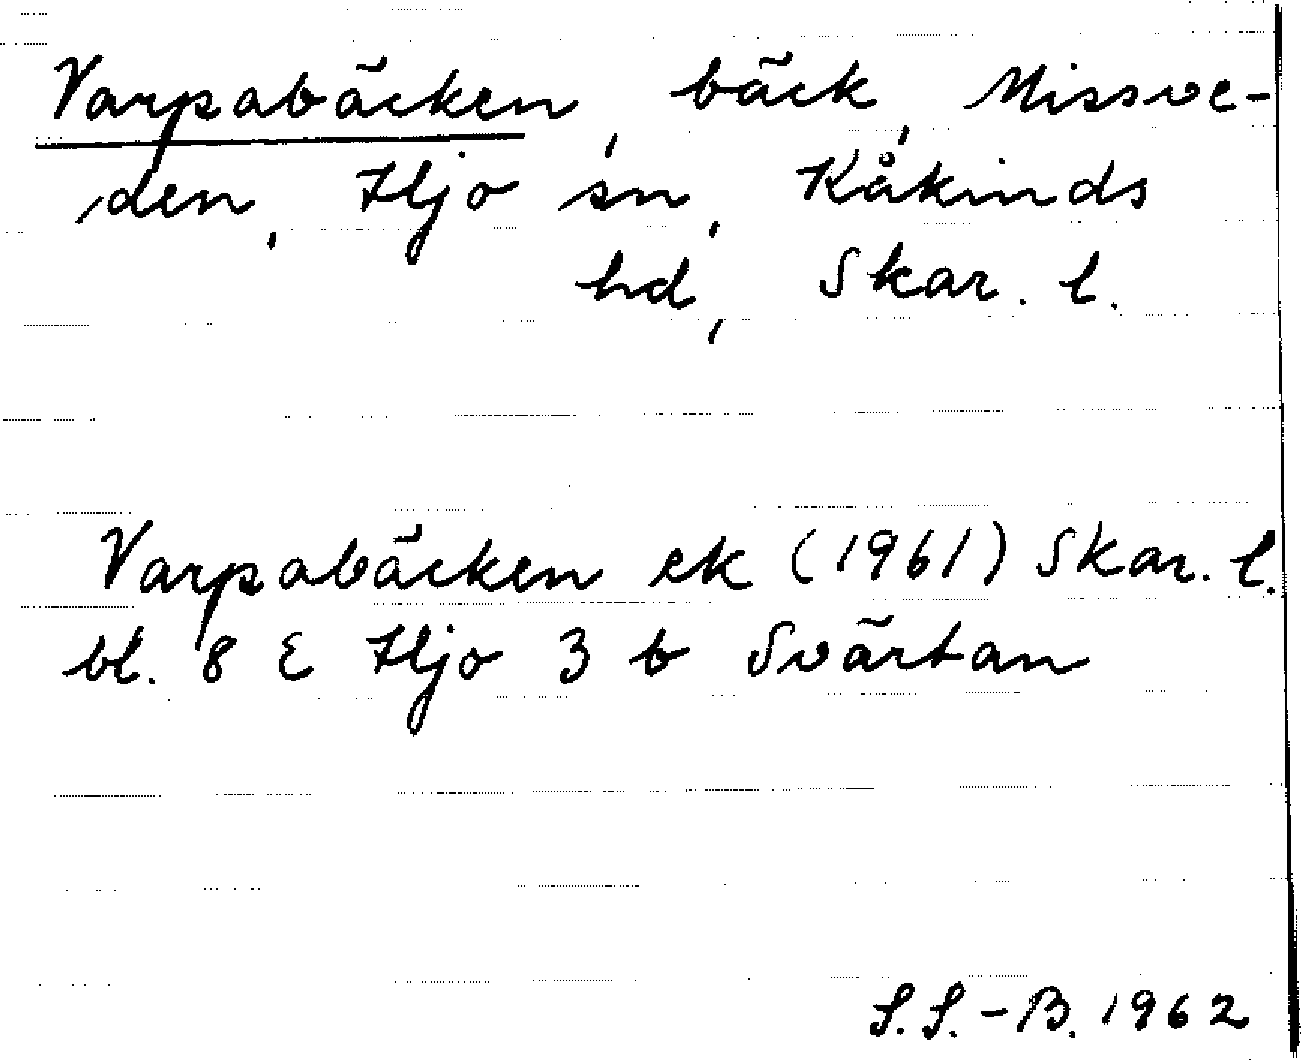 Varpabäcken, bäck, Missve-
den, Hjo sn, Kåkinds
hd, Skar. l.
Varpabäcken ek (1961) Skar. l.
bl. 8 E Hjo 3 b Svärtan
S.S.-B. 1962